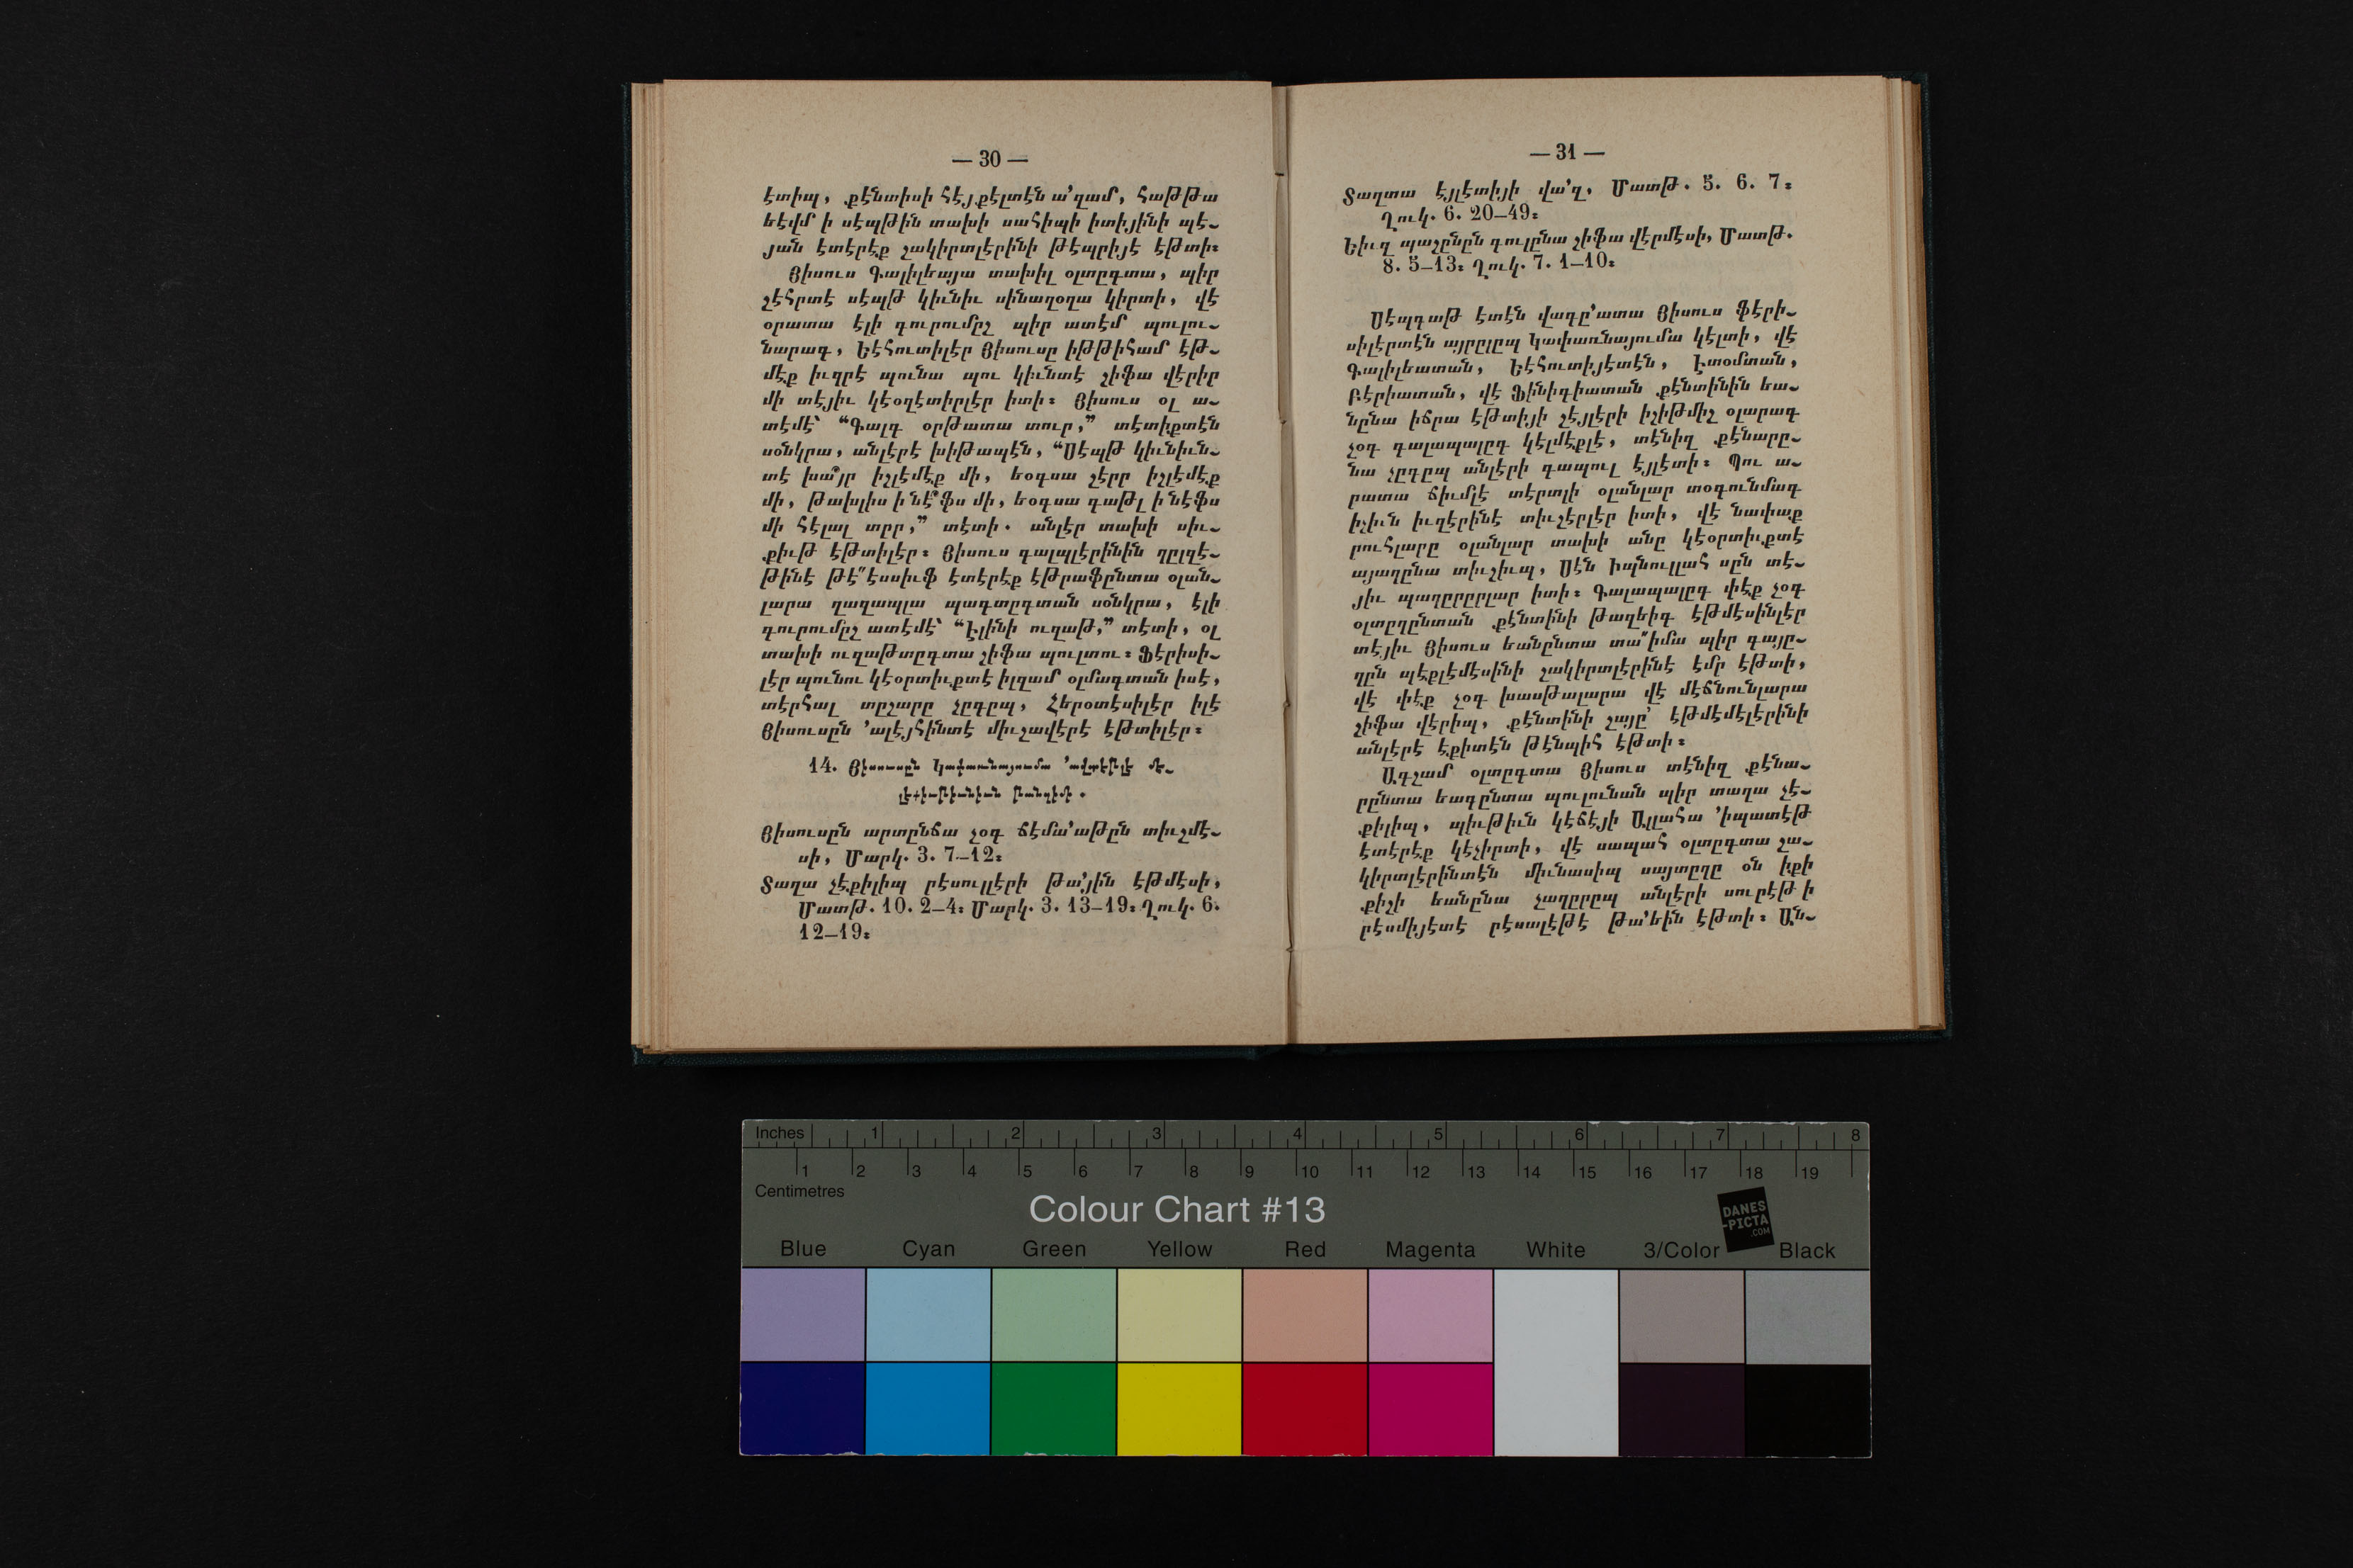 — 30 —
էտիպ, քէնտիսի հէյքէլտէն ա՚ղամ, հաթթա
եէվմ ի սէպթին տախի սահիպի իտիյինի պէ-
յան էտէրէք շակիրտլէրինի թէպրիյէ էթտի։
Յիսուս Գալիլեայա տախիլ օլտըգտա, պիր
չէհրտէ սէպթ կիւնիւ սինաղօղա կիրտի, վէ
օրատա էլի գուրումըշ պիր ատէմ պուլու-
նարագ, Եէհուտիլէր Յիսուսը իթթիհամ էթ-
մէք իւզրէ պունա պու կիւնտէ շիֆա վէրիր
մի տէյիւ կէօզէտիրլէր իտի։ Յիսուս օլ ա-
տէմէ՝ “Գալգ օրթատա տուր,” տէտիքտէն
սօնկրա, անլէրէ խիթապէն, “Սէպթ կիւնիւն-
տէ խա՞յր իշլէմէք մի, եօգսա շէրր իշլէմէք
մի, թախլիս ի նէ՞ֆս մի, եօգսա գաթլ ի նէֆս
մի հէլալ տըր,” տէտի. անլէր տախի սիւ-
քիւթ էթտիլէր։ Յիսուս գալպլէրինին ղըլղէ-
թինէ թէ՚՚էսսիւֆ էտէրէք էթրաֆընտա օլան-
լարա ղաղապլա պագտըգտան սօնկրա, էլի
գուրումըշ ատէմէ՝ “Էլինի ուզաթ,” տէտի, օլ
տախի ուզաթտըգտա շիֆա պուլտու։ Ֆէրիսի-
լէր պունու կէօրտիւքտէ իլզամ օլմագտան իսէ,
տէրհալ տըշարը չըգըպ, Հերօտէսիլէր իլէ
Յիսուսըն ՚ալէյհինտէ միւշավէրէ էթտիլէր։
14. Յիսուսըն Կափառնայումա ՚ավտէթլէ մէ-
Յիսուսըն արտընճա չօգ ճէմա՚աթըն տիւշմէ-
սի, Մարկ. 3. 7–12։
Տաղա չէքիլիպ րէսուլլէրի թա՚յին էթմէսի,
Մատթ. 10. 2–4։ Մարկ. 3. 13–19։ Ղուկ. 6.
12–19։
— 31 —
Տաղտա էյլէտիյի վա՚զ, Մատթ. 5. 6. 7։
Ղուկ. 6. 20–49։
Եիւզ պաշընըն գուլընա շիֆա վէրմէսի, Մատթ.
8. 5–13։ Ղուկ. 7. 1–10։
Սէպգաթ էտէն վագը՚ատա Յիսուս ֆէրի-
սիլէրտէն այրըլըպ Կափառնայումա կէլտի, վէ
Գալիլեատան, Եէհուտիյէտէն, Էտօմտան,
Բէրիատան, վէ Ֆինիգիատան քէնտինին եա-
նընա իճրա էթտիյի շէյլէրի իշիթմիշ օլարագ
չօգ գալապալըգ կէլմէքլէ, տէնիզ քէնարը-
նա չըգըպ անլէրի գապուլ էյլէտի։ Պու ա-
րատա ճիւմլէ տէրտլի օլանլար տօգունմագ
իչիւն իւզէրինէ տիւշէրլէր իտի, վէ նափաք
րուհլարը օլանլար տախի անը կէօրտիւքտէ
այաղընա տիւշիւպ, Սէն Իպնուլլահ սըն տէ-
յիւ պաղըրըրլար իտի։ Գալապալըգ փէք չօգ
օլտըղընտան քէնտինի թազեիգ էթմէսինլէր
տէյիւ Յիսուս եանընտա տա՚՚իմա պիր գայը-
ղըն պէքլէմէսինի շակիրտլէրինէ էմր էթտի,
վէ փէք չօգ խասթալարա վէ մէճնունլարա
շիֆա վէրիպ, քէնտինի շայը՚ էթմէմէլէրինի
անլէրէ էքիտէն թէնպիհ էթտի։
Ագշամ օլտըգտա Յիսուս տէնիզ քէնա-
րընտա եագընտա պուլունան պիր տաղա չէ-
քիլիպ, պիւթիւն կէճէյի Ալլահա ՚իպատէթ
էտէրէք կէչիրտի, վէ սապահ օլտըգտա շա-
կիրտլէրինտէն միւնասիպ սայտըղը օն իքի
քիշի եանընա չաղըրըպ անլէրի սուրէթ ի
րէսմիյէտէ րէսալէթէ թա՚եին էթտի։ Ան-
Inches 1 2 3 4 5 6 7 8
1 2 3 4 5 6 7 8 9 10 11 12 13 14 15 16 17 18 19
Centimetres
Colour Chart #13
DANES
-PICTA
.COM
Blue Cyan Green Yellow Red Magenta White 3/Color Black